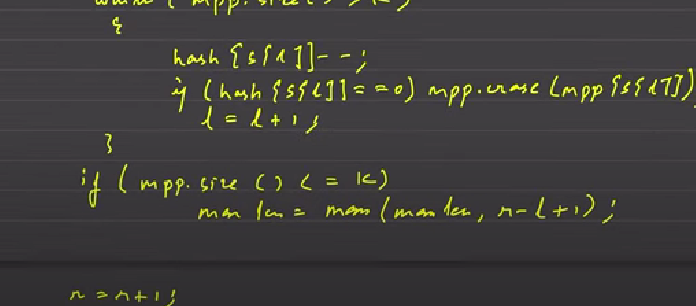 while ( mpp.size() > k)
{
hash [s[l]]--;
if (hash [s[l]] == 0) mpp.erase (mpp[s[l]])
l = l + 1;
}
if ( mpp.size () <= k)
maxlen = max (maxlen, r-l+1);
r = r+1;